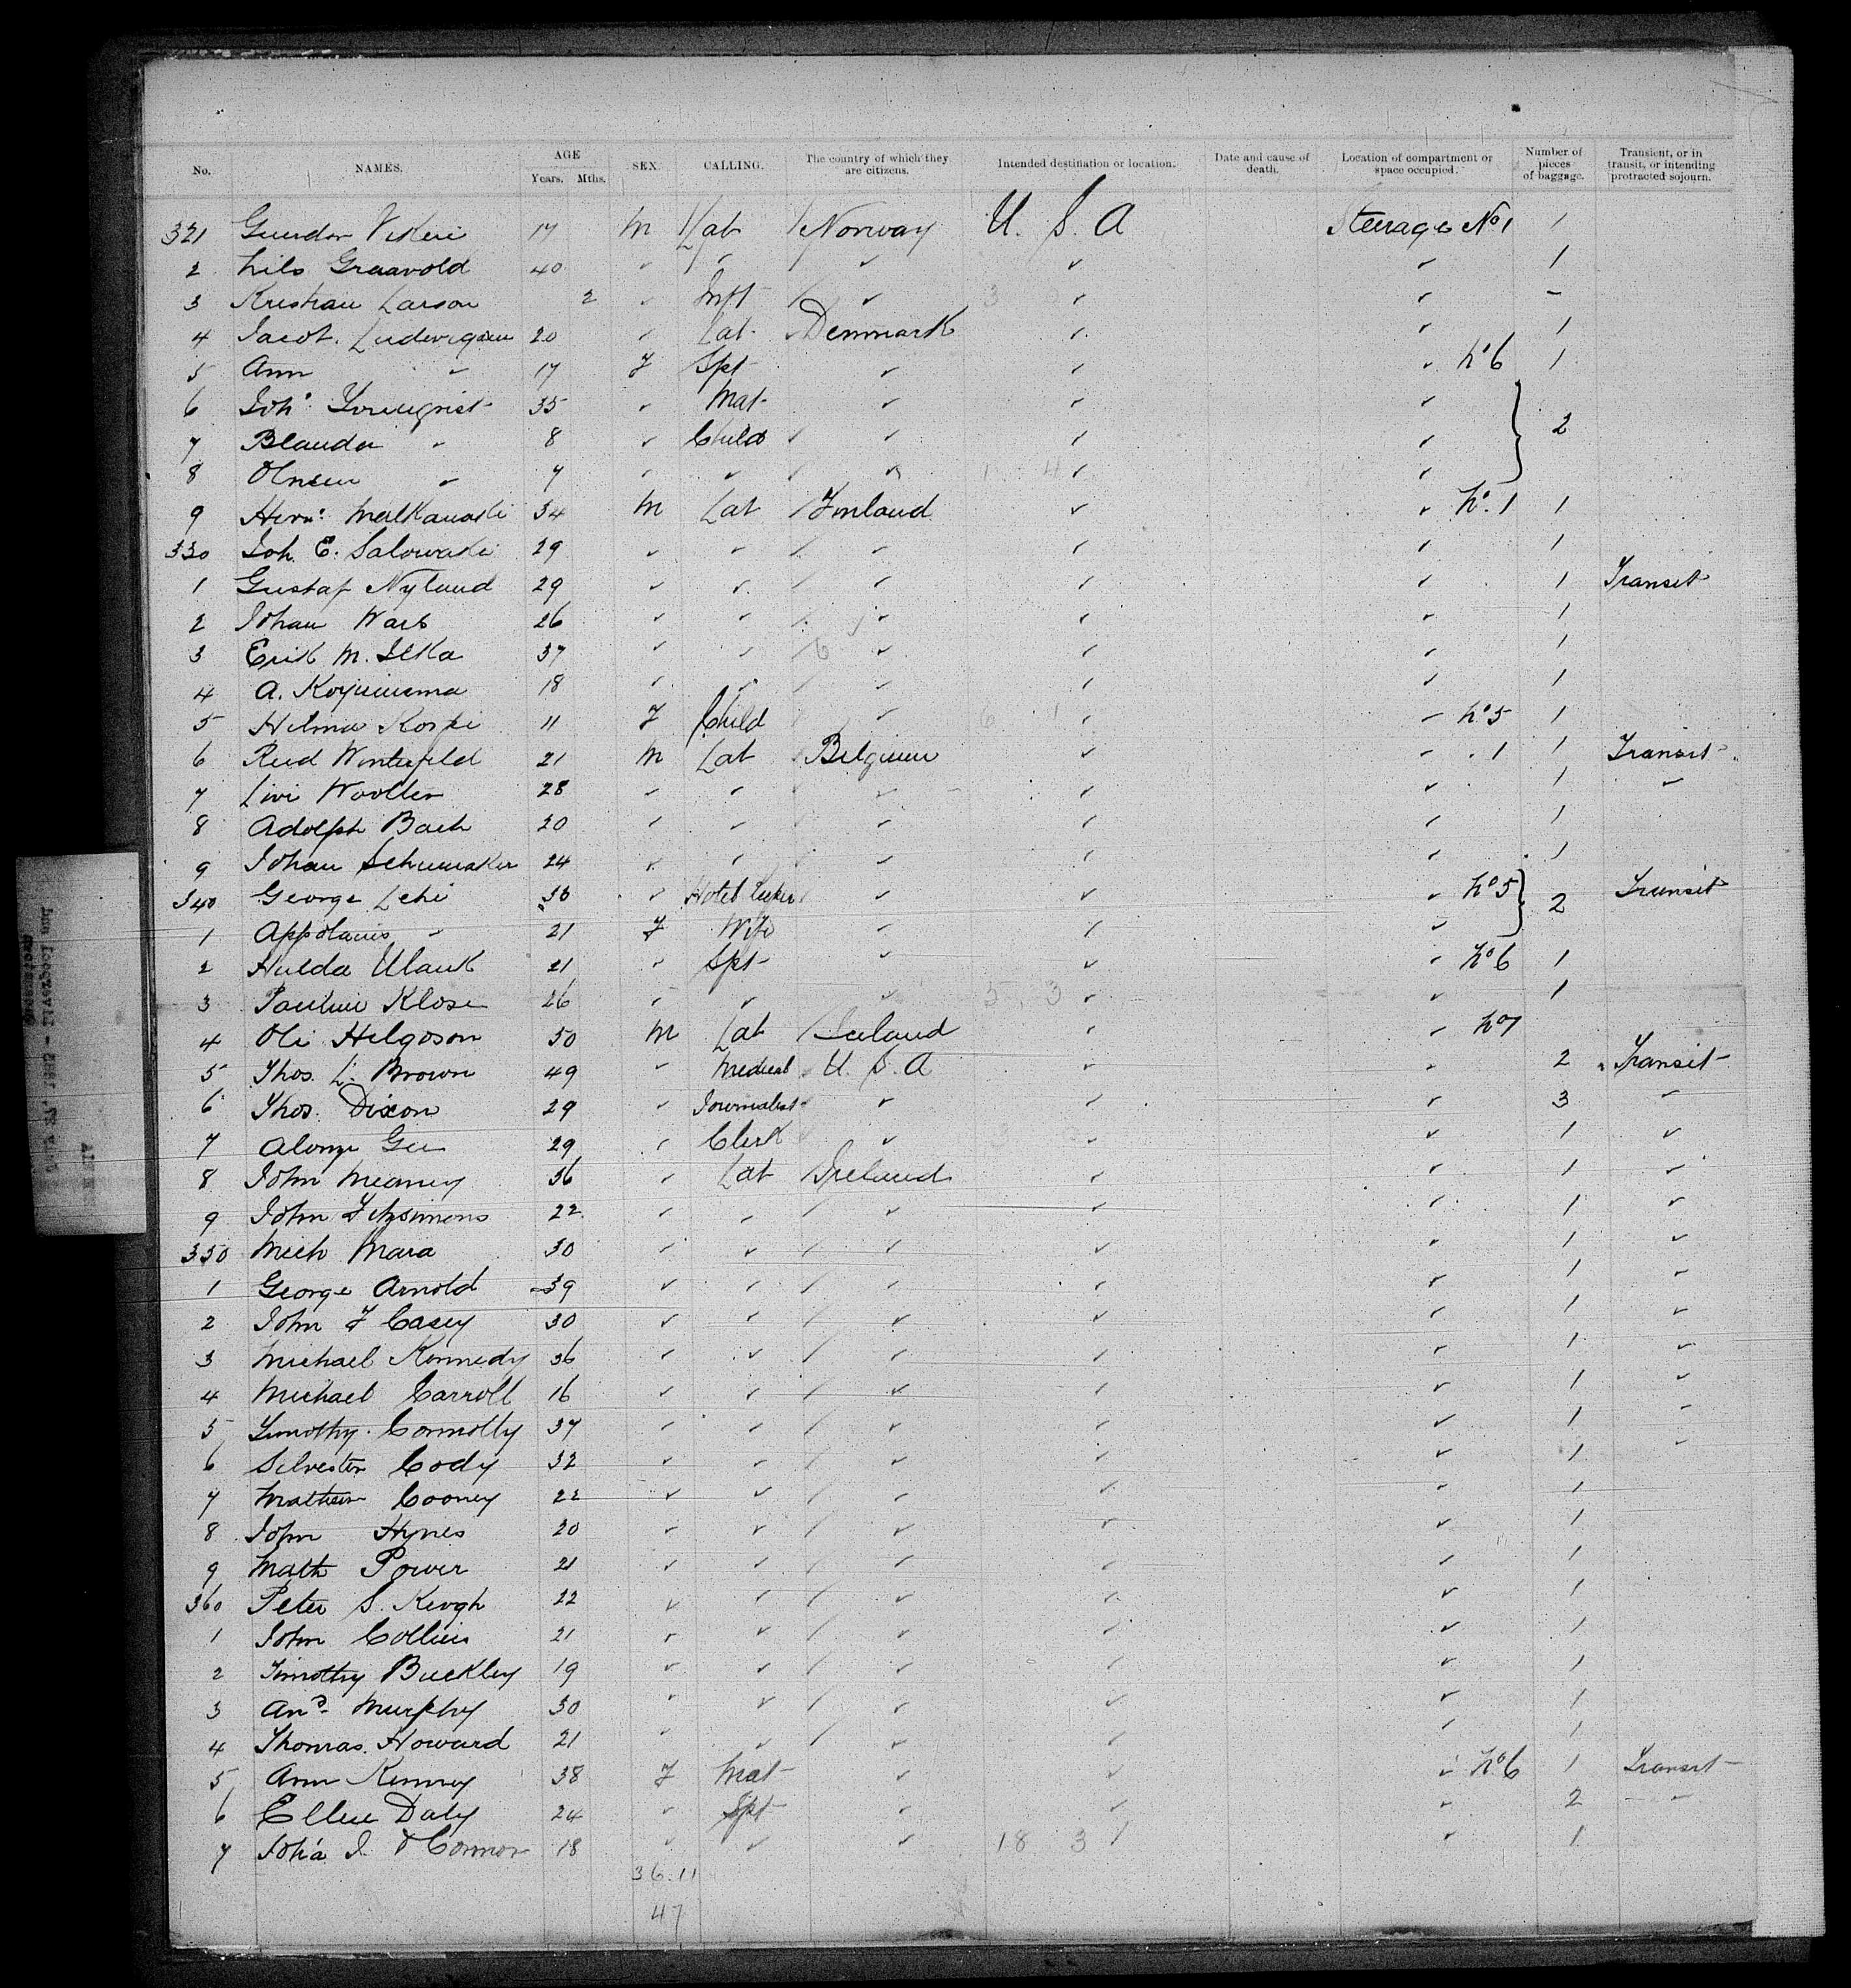 No. NAMES. AGE Years. Mths. SEX. CALLING. The country of which they are citizens. Intended destination or location. Date and cause of death. Location of compartment or space occupied. Number of pieces of baggage. Transient, or in transit, or intending protracted sojourn.
321 17 M Lab Norway U. S. A Steerage No 1 1
2 40 " " " " " 1
3 Larson 2 " Inft " " " -
4 Jacob. 20 " Lab Denmark " " 1
5 Ann " 17 F Spt " " " No 6 1
6 35 " Mat " " "
7 " 8 " Child " " " } 2
8 " 7 " " " " "
9 34 M Lab Finland " " No. 1 1
330 Joh. E. 29 " " " " " 1
1 Gustaf Nylund 29 " " " " " 1 Transit
2 Johan 26 " " " " " 1
3 Erik M. 37 " " " " " 1
4 A. 18 " " " " " 1
5 Hilma Koski 11 F Child " " " No 5 1
6 21 M Lab Belgium " " . 1 1 Transit
7 28 " " " " " 1 "
8 Adolph Bach 20 " " " " " 1
9 Johan Schumaker 24 " " " " " 1
340 George 30 " Hotel keeper " " " No 5 } 2 Transit
1 " 21 F Wife " " "
2 Hulda 21 " Spt " " " No 6 1
3 Pauline Klose 26 " " " " " 1
4 Oli Helgoson 50 M Lab Iceland " " No 7
5 Thos. L. Brown 49 " Medical U. S. A " " 2 Transit
6 Thos. Dixon 29 " Journalist " " " 3 "
7 29 " Clerk " " " 1 "
8 John Meaney 36 " Lab Ireland " " 1 "
9 John Fitzsimons 22 " " " " " 1 "
350 Mich Mara 30 " " " " " 1 "
1 George Arnold 39 " " " " " 1 "
2 John F Casey 30 " " " " " 1 "
3 Michael Kennedy 36 " " " " " 1 "
4 Michael Carroll 16 " " " " " 1 "
5 Timothy Connolly 37 " " " " " 1 "
6 Silvester Cody 32 " " " " " 1 "
7 Mathew Cooney 22 " " " " " 1
8 John Hynes 20 " " " " " 1
9 Math Power 21 " " " " " 1
360 Peter S. Keogh 22 " " " " " 1
1 John Collins 21 " " " " " 1
2 Timothy Buckley 19 " " " " " 1
3 And Murphy 30 " " " " " 1
4 Thomas Howard 21 " " " " " 1
5 Ann 38 F Mat " " " No 6 1 Transit
6 Ellen Daly 24 " Spt " " " 2 "
7 Joha J. O'Connor 18 " " " " " 1
36.11
47